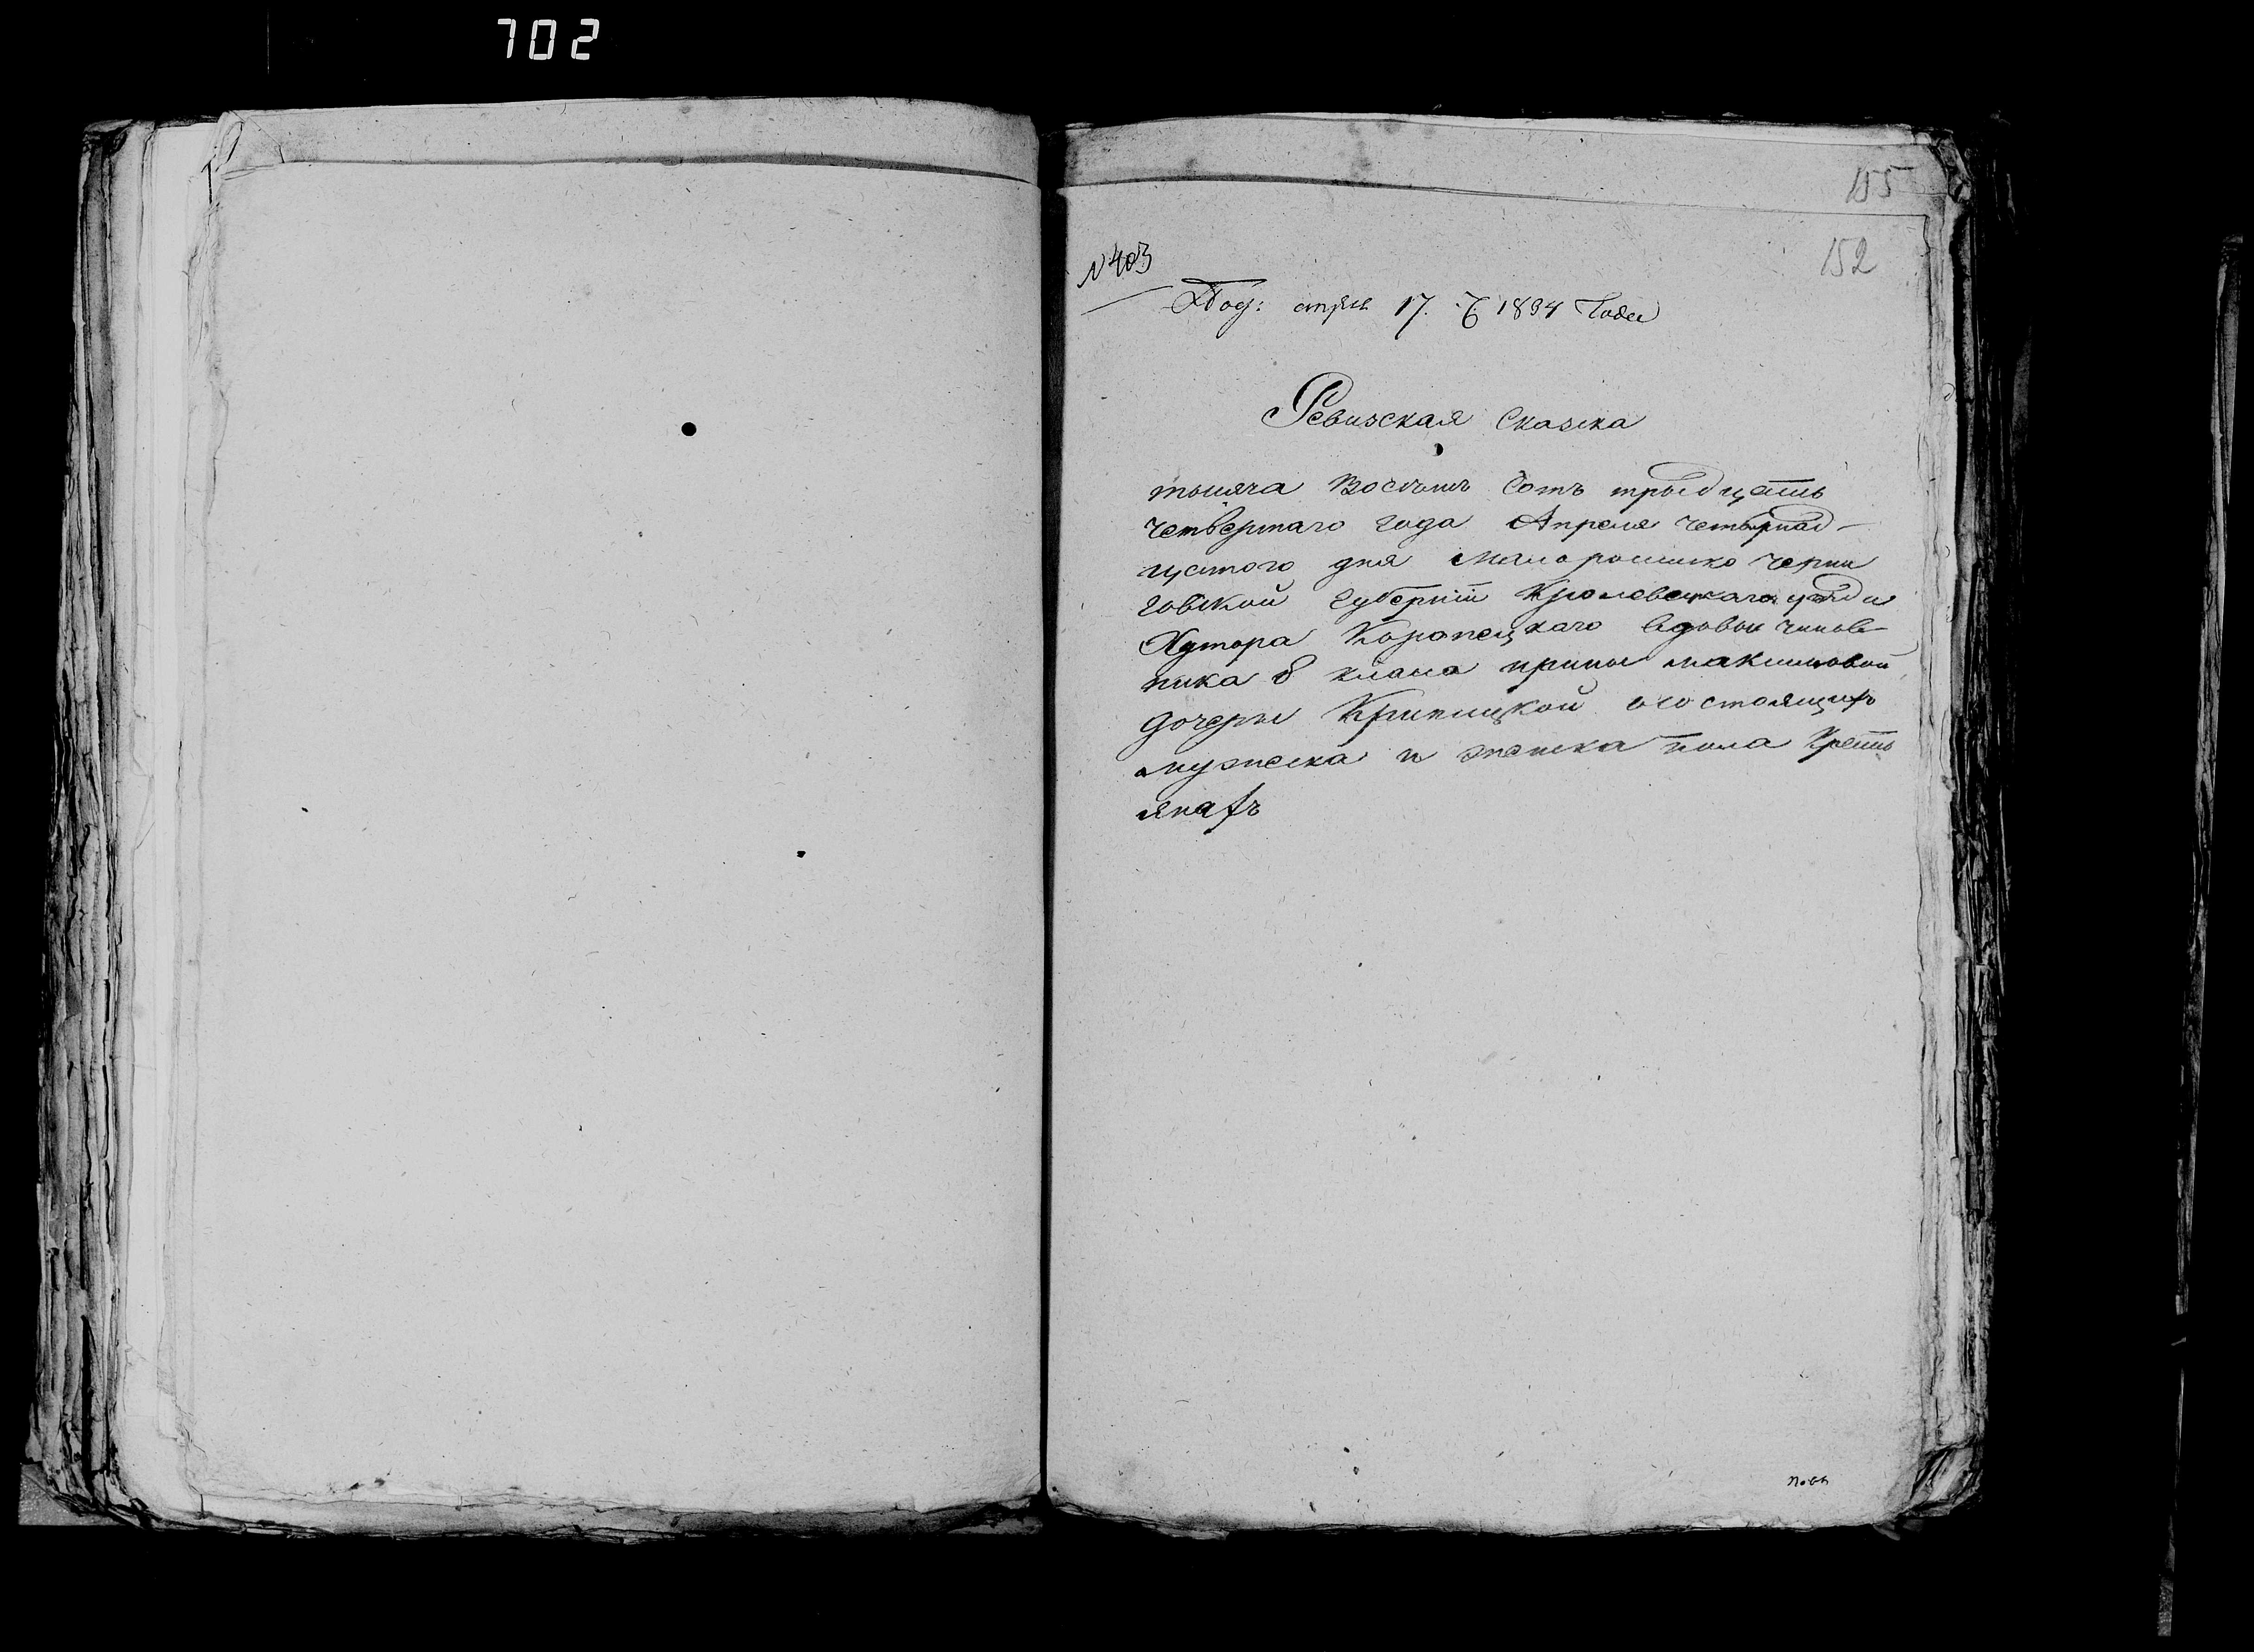 702
155
152
N 403
Под: апреля 17. 1834 Года
Ревизская Сказка
тысяча Восемъ Сотъ трыдцать
четвертаго года Апреля четырнад-
цатого дня Малоросийско черни
говской Губернїи Кролевецкаго уезда
Хутора Коропецкаго вдовы чинов
ника 8 класа ирины максимовой
дочеры Крипицкой
мужеска и женска пола Крестъ
янахъ